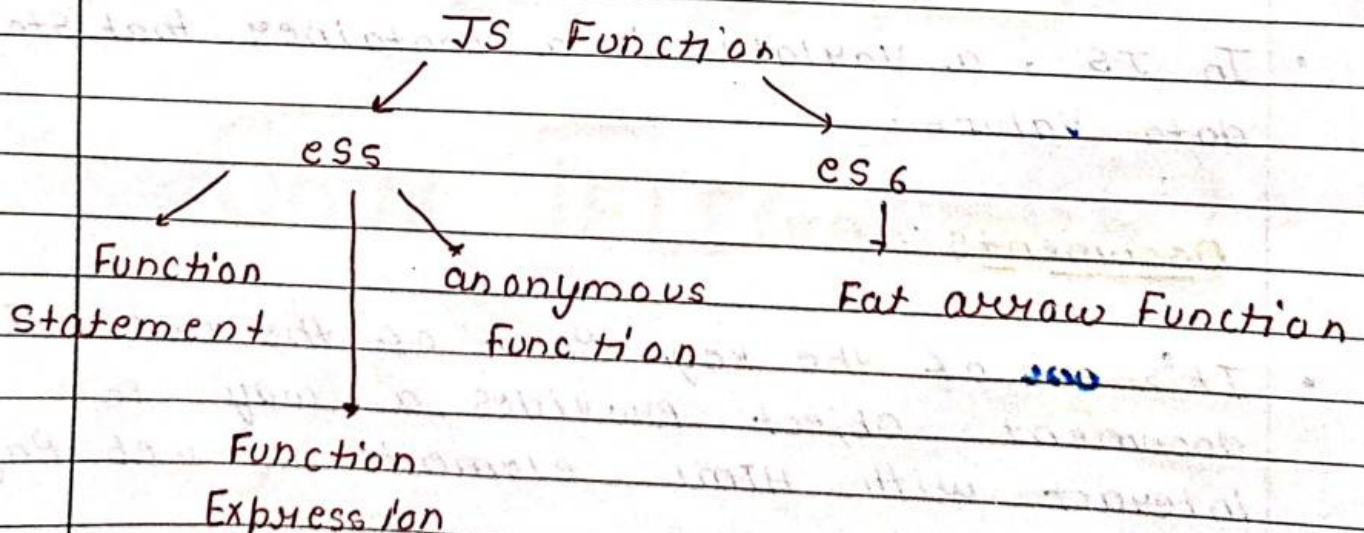 JS Function
es5
es6
Function
Statement
anonymous
Function
Fat arrow Function
Function
Expression